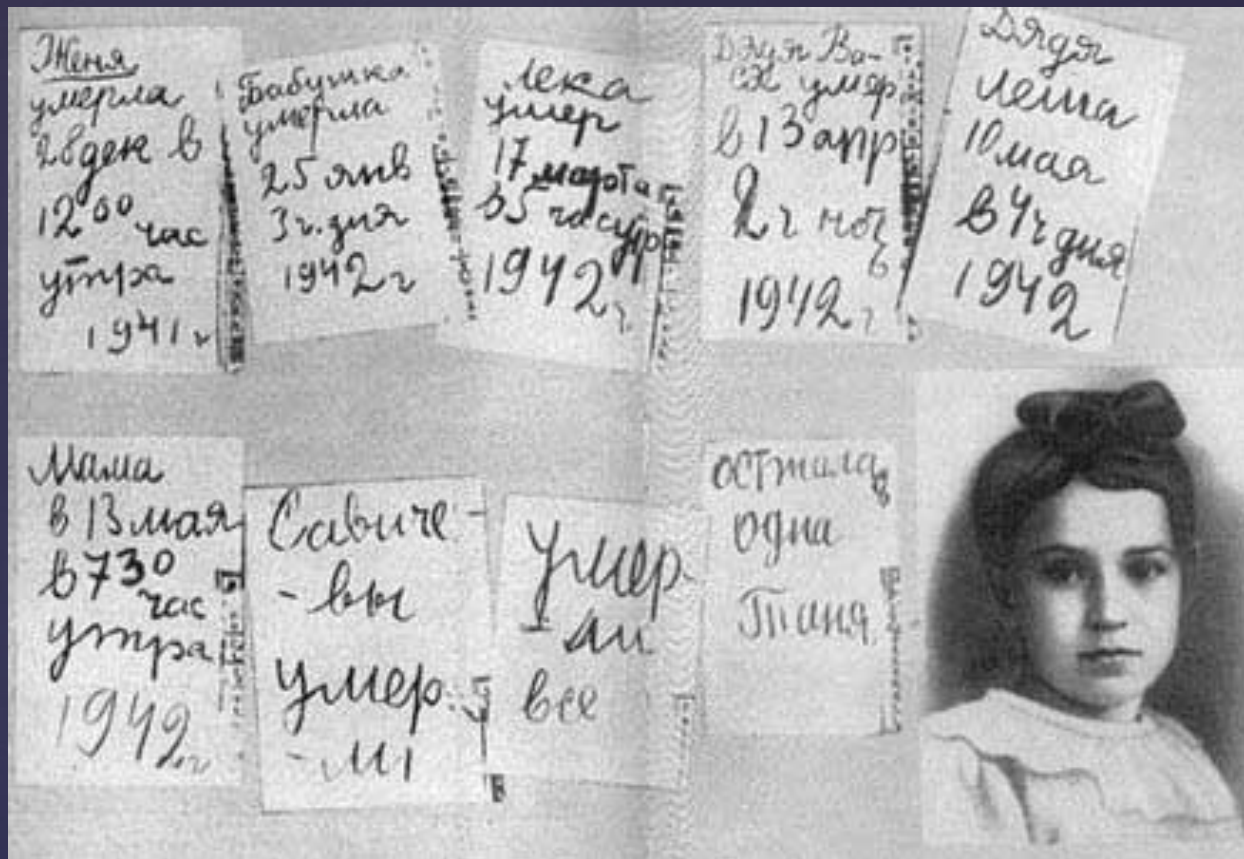 Женя
умерла
28 дек в
12 00 час
утра
1941 г
Бабушка
умерла
25 янв
3 ч. дня
1942 г
Лека
умер
17 марта
в 5 час утр
1942 г.
Дядя Ва-
ся умер
в 13 апр
2 ч ноч
ь
1942 г
Дядя
Леша
10 мая
в 4 ч дня
1942
Мама
в 13 мая
в 7 30
час
утра
1942 г
Савиче-
-вы
умер-
-ли
Умер-
-ли
все
Осталась
одна
Таня